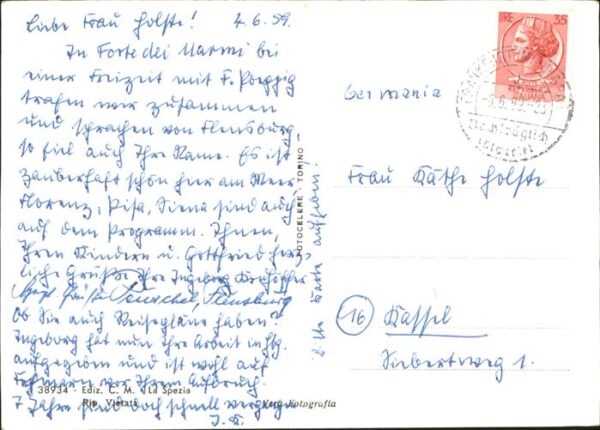 Liebe Frau Holste! 4.6.59.
In Forte dei Marmi bei
einer Freizeit mit F. Poepzig
trafen wir zusammen
und sprachen von Flensburg,
so fiel auch Ihre Name. Es ist
zauberhaft schön hier am Meer
Florenz, Pisa, Siena sind auch
auf dem Programm. Ihnen,
Ihren Kindern u. Gottfried herz-
liche Grüße Ihre Ingeborg Kirchhoffer
Flensburg
Ob Sie auch Reisepläne haben?
Ingeborg hat nun ihre Arbeit in Hbg.
aufgegeben und ist wohl auf
Fehmarn vor ihrem Aufbruch.
7 Jahre sind doch schnell
I. K.
38934 - Ediz. C. M. - La Spezia
Rip. Vietata
Vera Fotografia
FOTOCELERE - TORINO
Karte aufheben!
LIRE 35
REPUBBLICA
ITALIANA
Nachträglich
entwertet
Germania
Frau Käthe Holste
16 Kassel
Siebertweg 1.